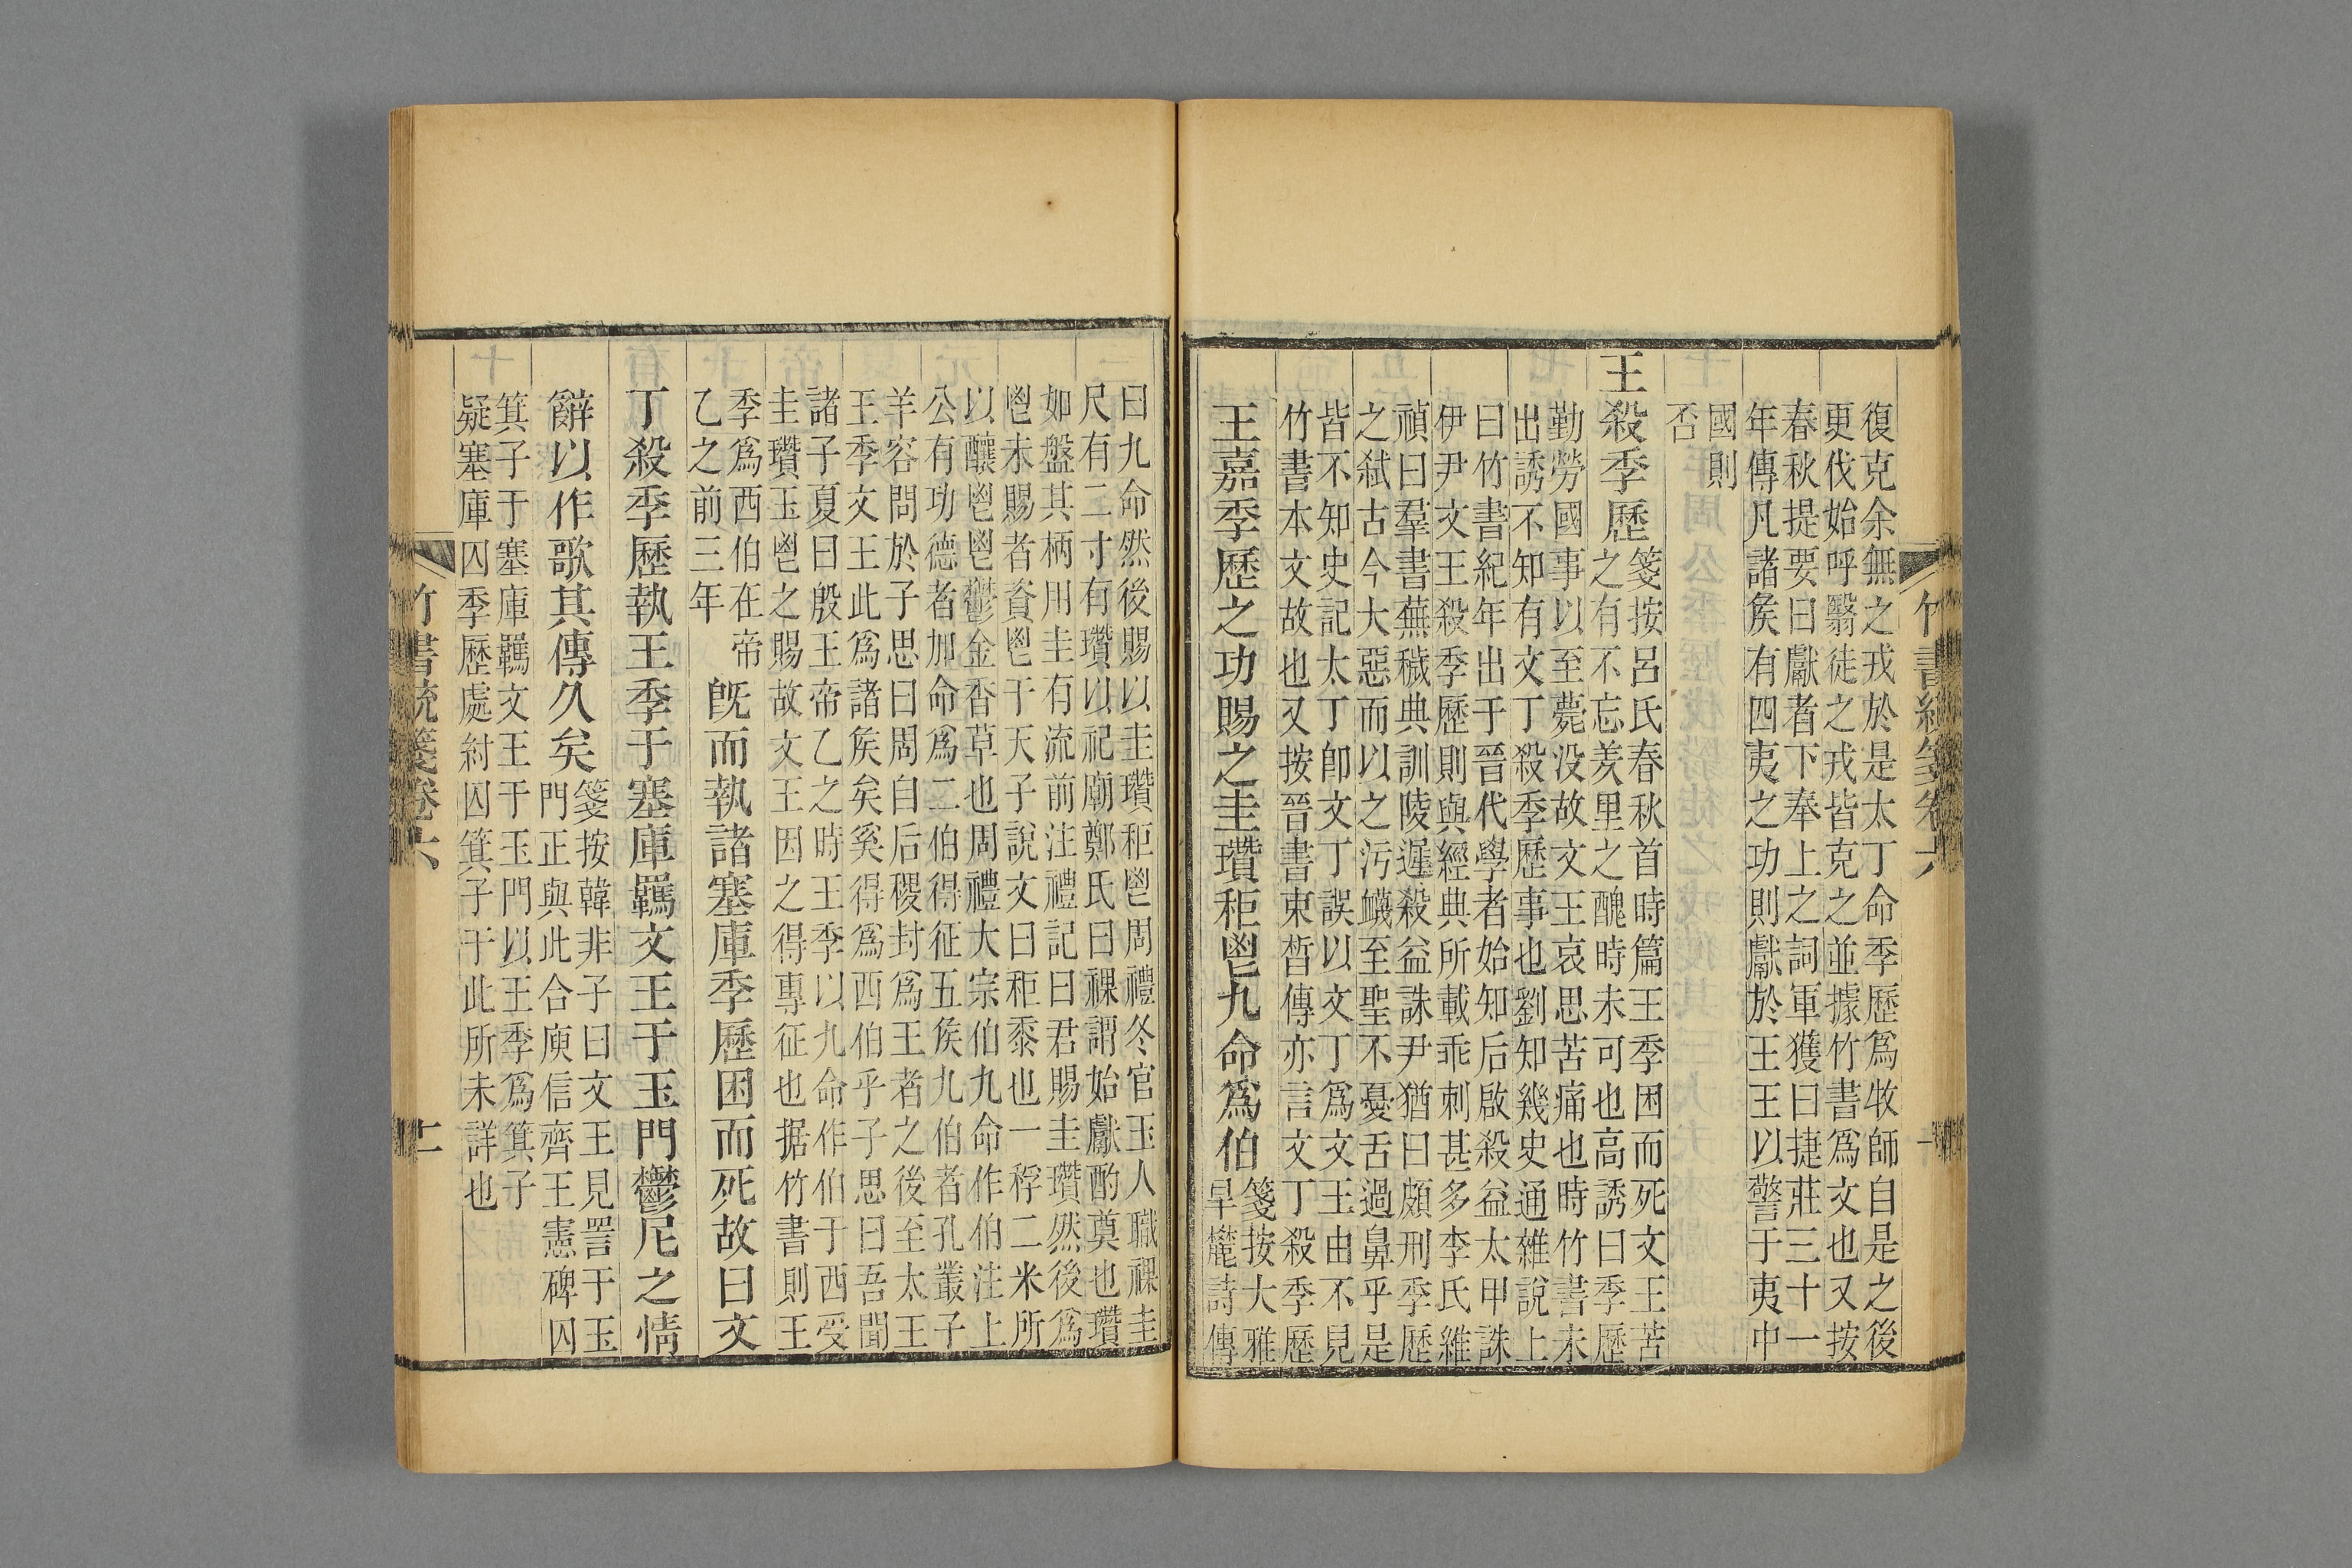 復克余無之戎於是太丁命季歷爲牧師自是之後
更伐始呼翳徒之戎皆克之並據竹書爲文也又按
春秋提要曰獻者下奉上之詞軍獲曰捷莊三十一
年傳凡諸矦有四夷之功則獻於王王以警于夷中
國則
否
王殺季歷
箋按呂氏春秋首時篇王季困而死文王苦
之有不忘羑里之醜時未可也高誘曰季歷
勤勞國事以至薨没故文王哀思苦痛也時竹書未
出誘不知有文丁殺季歷事也劉知幾史通雜說上
曰竹書紀年出于晉代學者始知后啟殺益太甲誅
伊尹文王殺季歷則與經典所載乖刺甚多李氏維
禎曰羣書蕪穢典訓陵遲殺益誅尹猶曰頗刑季歷
之弑古今大惡而以之污衊至聖不憂舌過鼻乎是
皆不知史記太丁卽文丁誤以文丁爲文王由不見
竹書本文故也又按晉書束晳傳亦言文丁殺季歷
王嘉季歷之功賜之圭瓚秬鬯九命爲伯
箋按大雅
旱麓詩傳
曰九命然後賜以圭瓚秬鬯周禮冬官玉人職祼圭
尺有二寸有瓚以祀廟鄭氏曰祼謂始獻酌奠也瓚
如盤其柄用圭有流前注禮記曰君賜圭瓚然後爲
鬯未賜者資鬯于天子說文曰秬黍也一稃二米所
以釀鬯鬯鬱金香草也周禮大宗伯九命作伯注上
公有功德者加命爲二伯得征五矦九伯者孔叢子
羊容問於子思曰周自后稷封爲王者之後至太王
王季文王此爲諸矦矣奚得爲西伯乎子思曰吾聞
諸子夏曰殷王帝乙之時王季以九命作伯于西受
圭瓚玉鬯之賜故文王因之得專征也据竹書則王
季爲西伯在帝
乙之前三年
旣而執諸塞庫季歷困而死故曰文
丁殺季歷執王季于塞庫羈文王于玉門鬱尼之情
辭以作歌其傳久矣
箋按韓非子曰文王見詈于玉
門正與此合庾信齊王憲碑囚
箕子于塞庫羈文王于玉門以王季爲箕子
疑塞庫囚季歷處紂囚箕子于此所未詳也
竹書統箋卷六